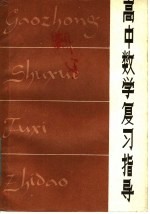 高中数学复习指导
Gaozhong
Shuxue
Fuxi
Zhidao